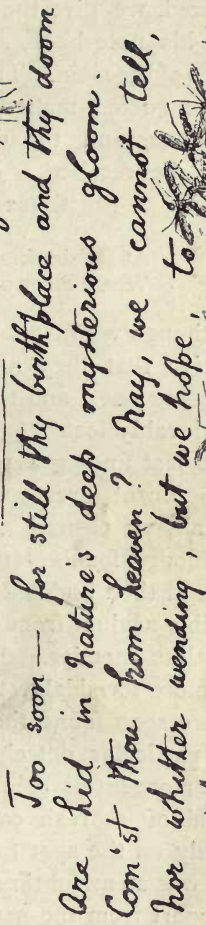 Too soon — for still thy birthplace and thy doom
Are hid in nature's deep mysterious gloom.
Com'st thou from heaven? nay, we cannot tell,
nor whither wending, but we hope, to